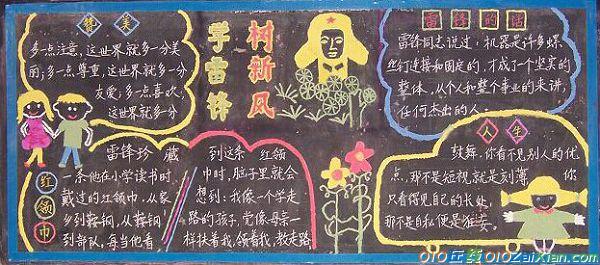 赞美
多点注意,这世界就多一分美
丽;多一点尊重,这世界就多一分
友爱;多一点喜欢,
这世界就多一分
学雷锋
树新风
雷锋的话
雷锋同志说过:机器是许多螺
丝钉连接和固定的,才成了个坚实的
整体,从个人和整个事业的来讲,
任何杰出的人
红领巾
雷锋珍藏
一条他在小学读书时
戴过的红领巾,从家
乡到鞍钢,从鞍钢
到部队,每当他看
到这条红领
巾时,脑子里就会
想到:我像一个学走
路的孩子,党像母亲一
样扶着我,领着我,教走路
人生
鼓舞:你看不见别人的优
点,那不是短视,就是刻薄,你
只看得见自己的长处,
那不是自私便是狂妄。
010在线010ZaiXian.com